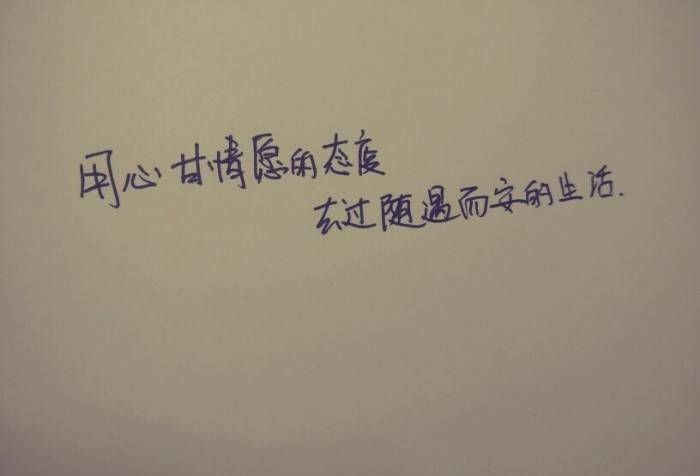 用心甘情愿的态度
去过随遇而安的生活.